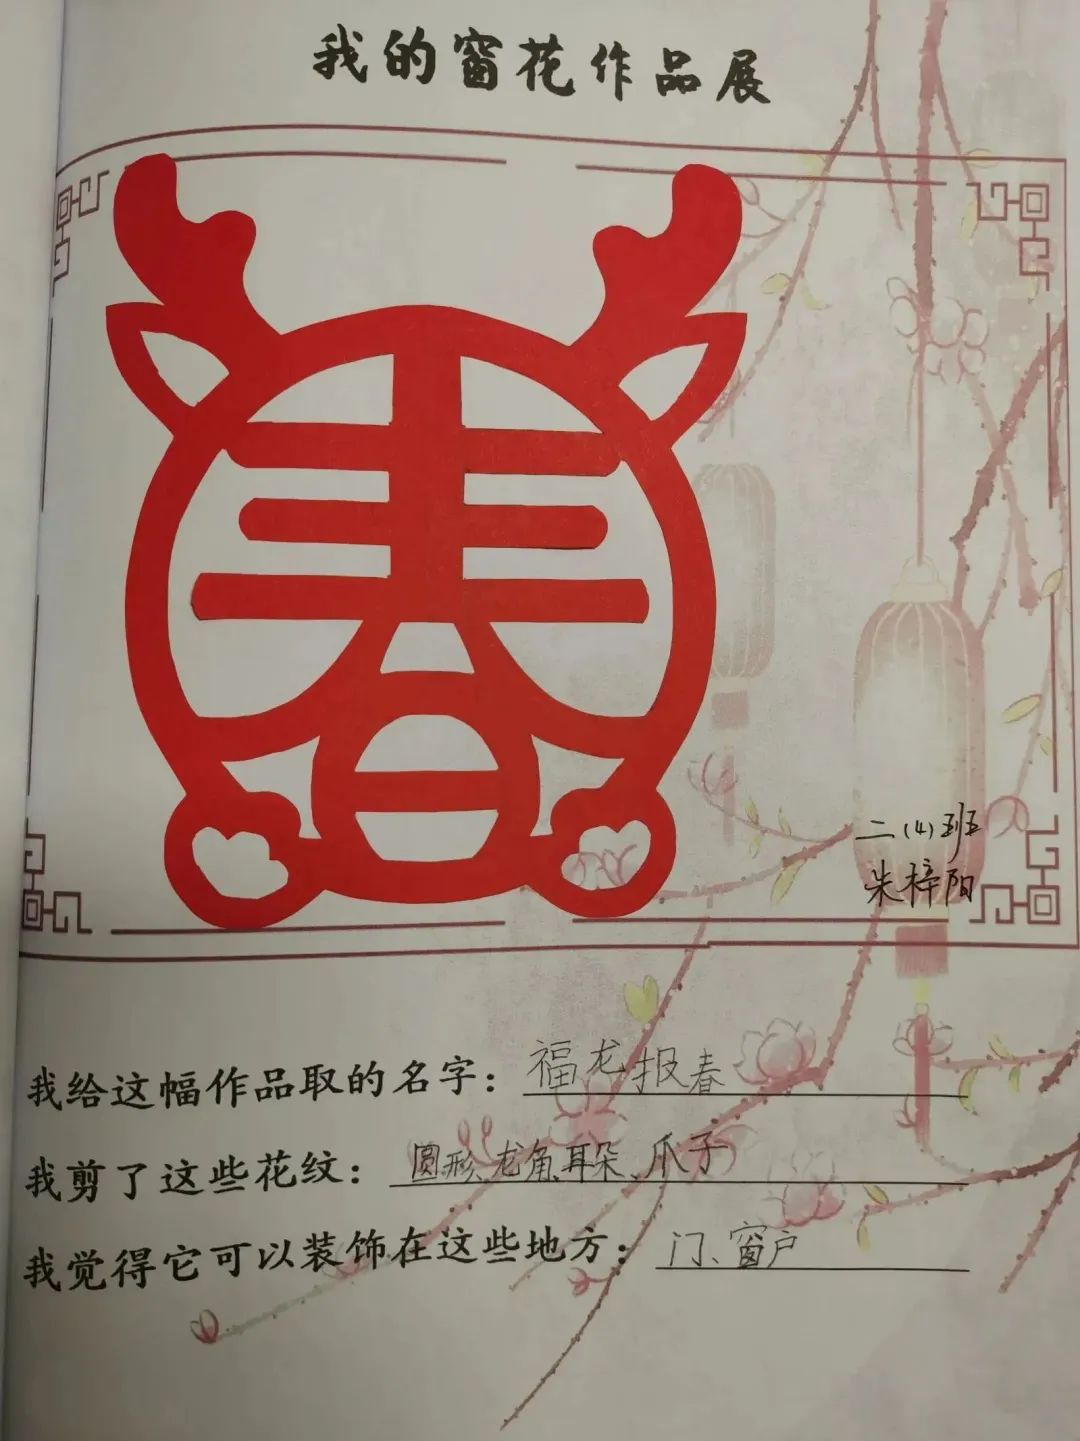 我的窗花作品展
春
二(4)班
朱梓阳
我给这幅作品取的名字：福龙报春
我剪了这些花纹：圆形、龙角、耳朵、爪子
我觉得它可以装饰在这些地方：门、窗户